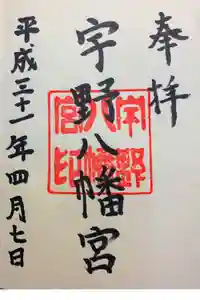 奉拝
宇野八幡宮
宇野八幡宮印
平成三十一年四月七日